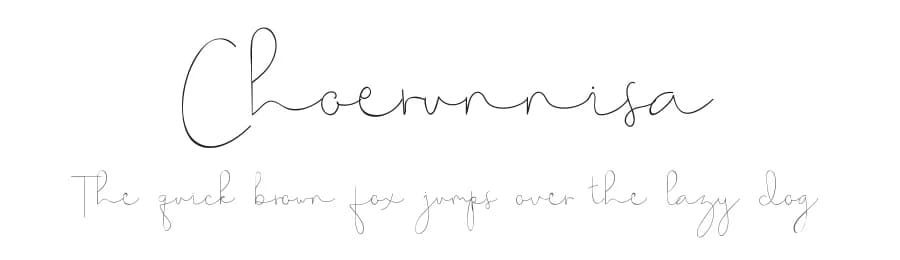 Choerunnisa
The quick brown fox jumps over the lazy dog